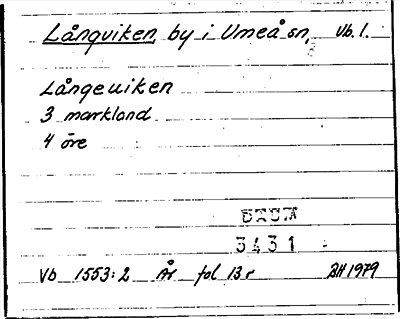 Långviken by i Umeå sn, Vb. 1.
Långeuiken
3 markland
4 öre
3431
Vb 1553:2 År fol 13 r BH 1979